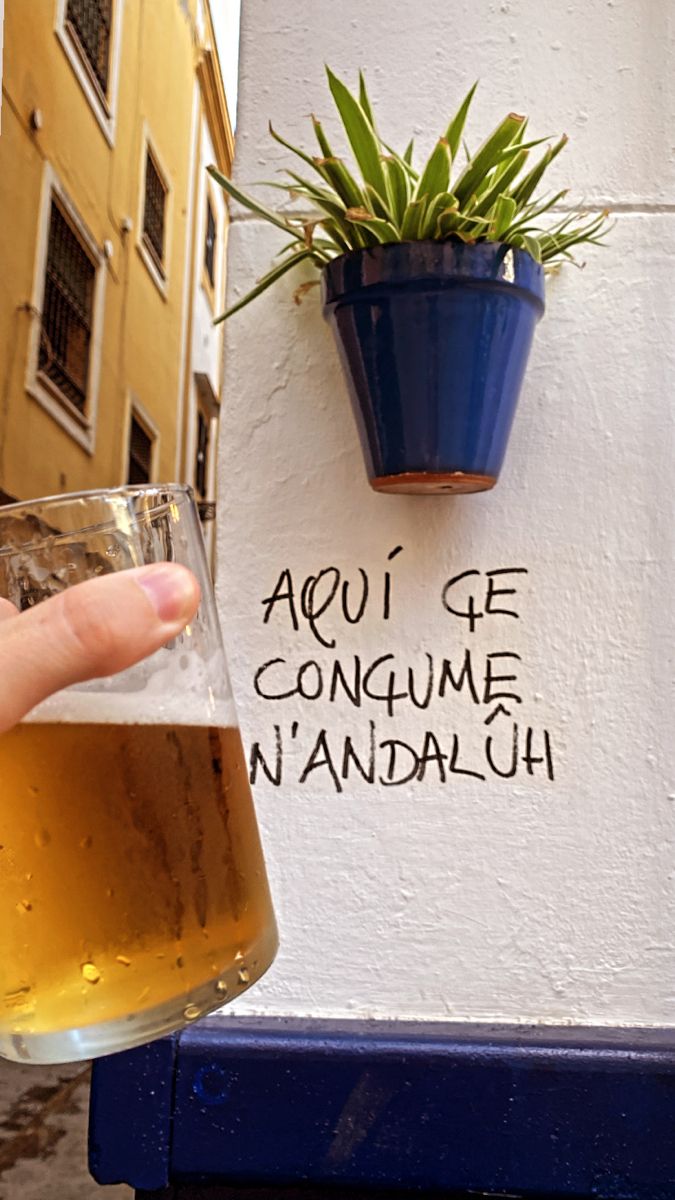 AQUÍ ÇE
CONÇUME
N'ANDALÛH